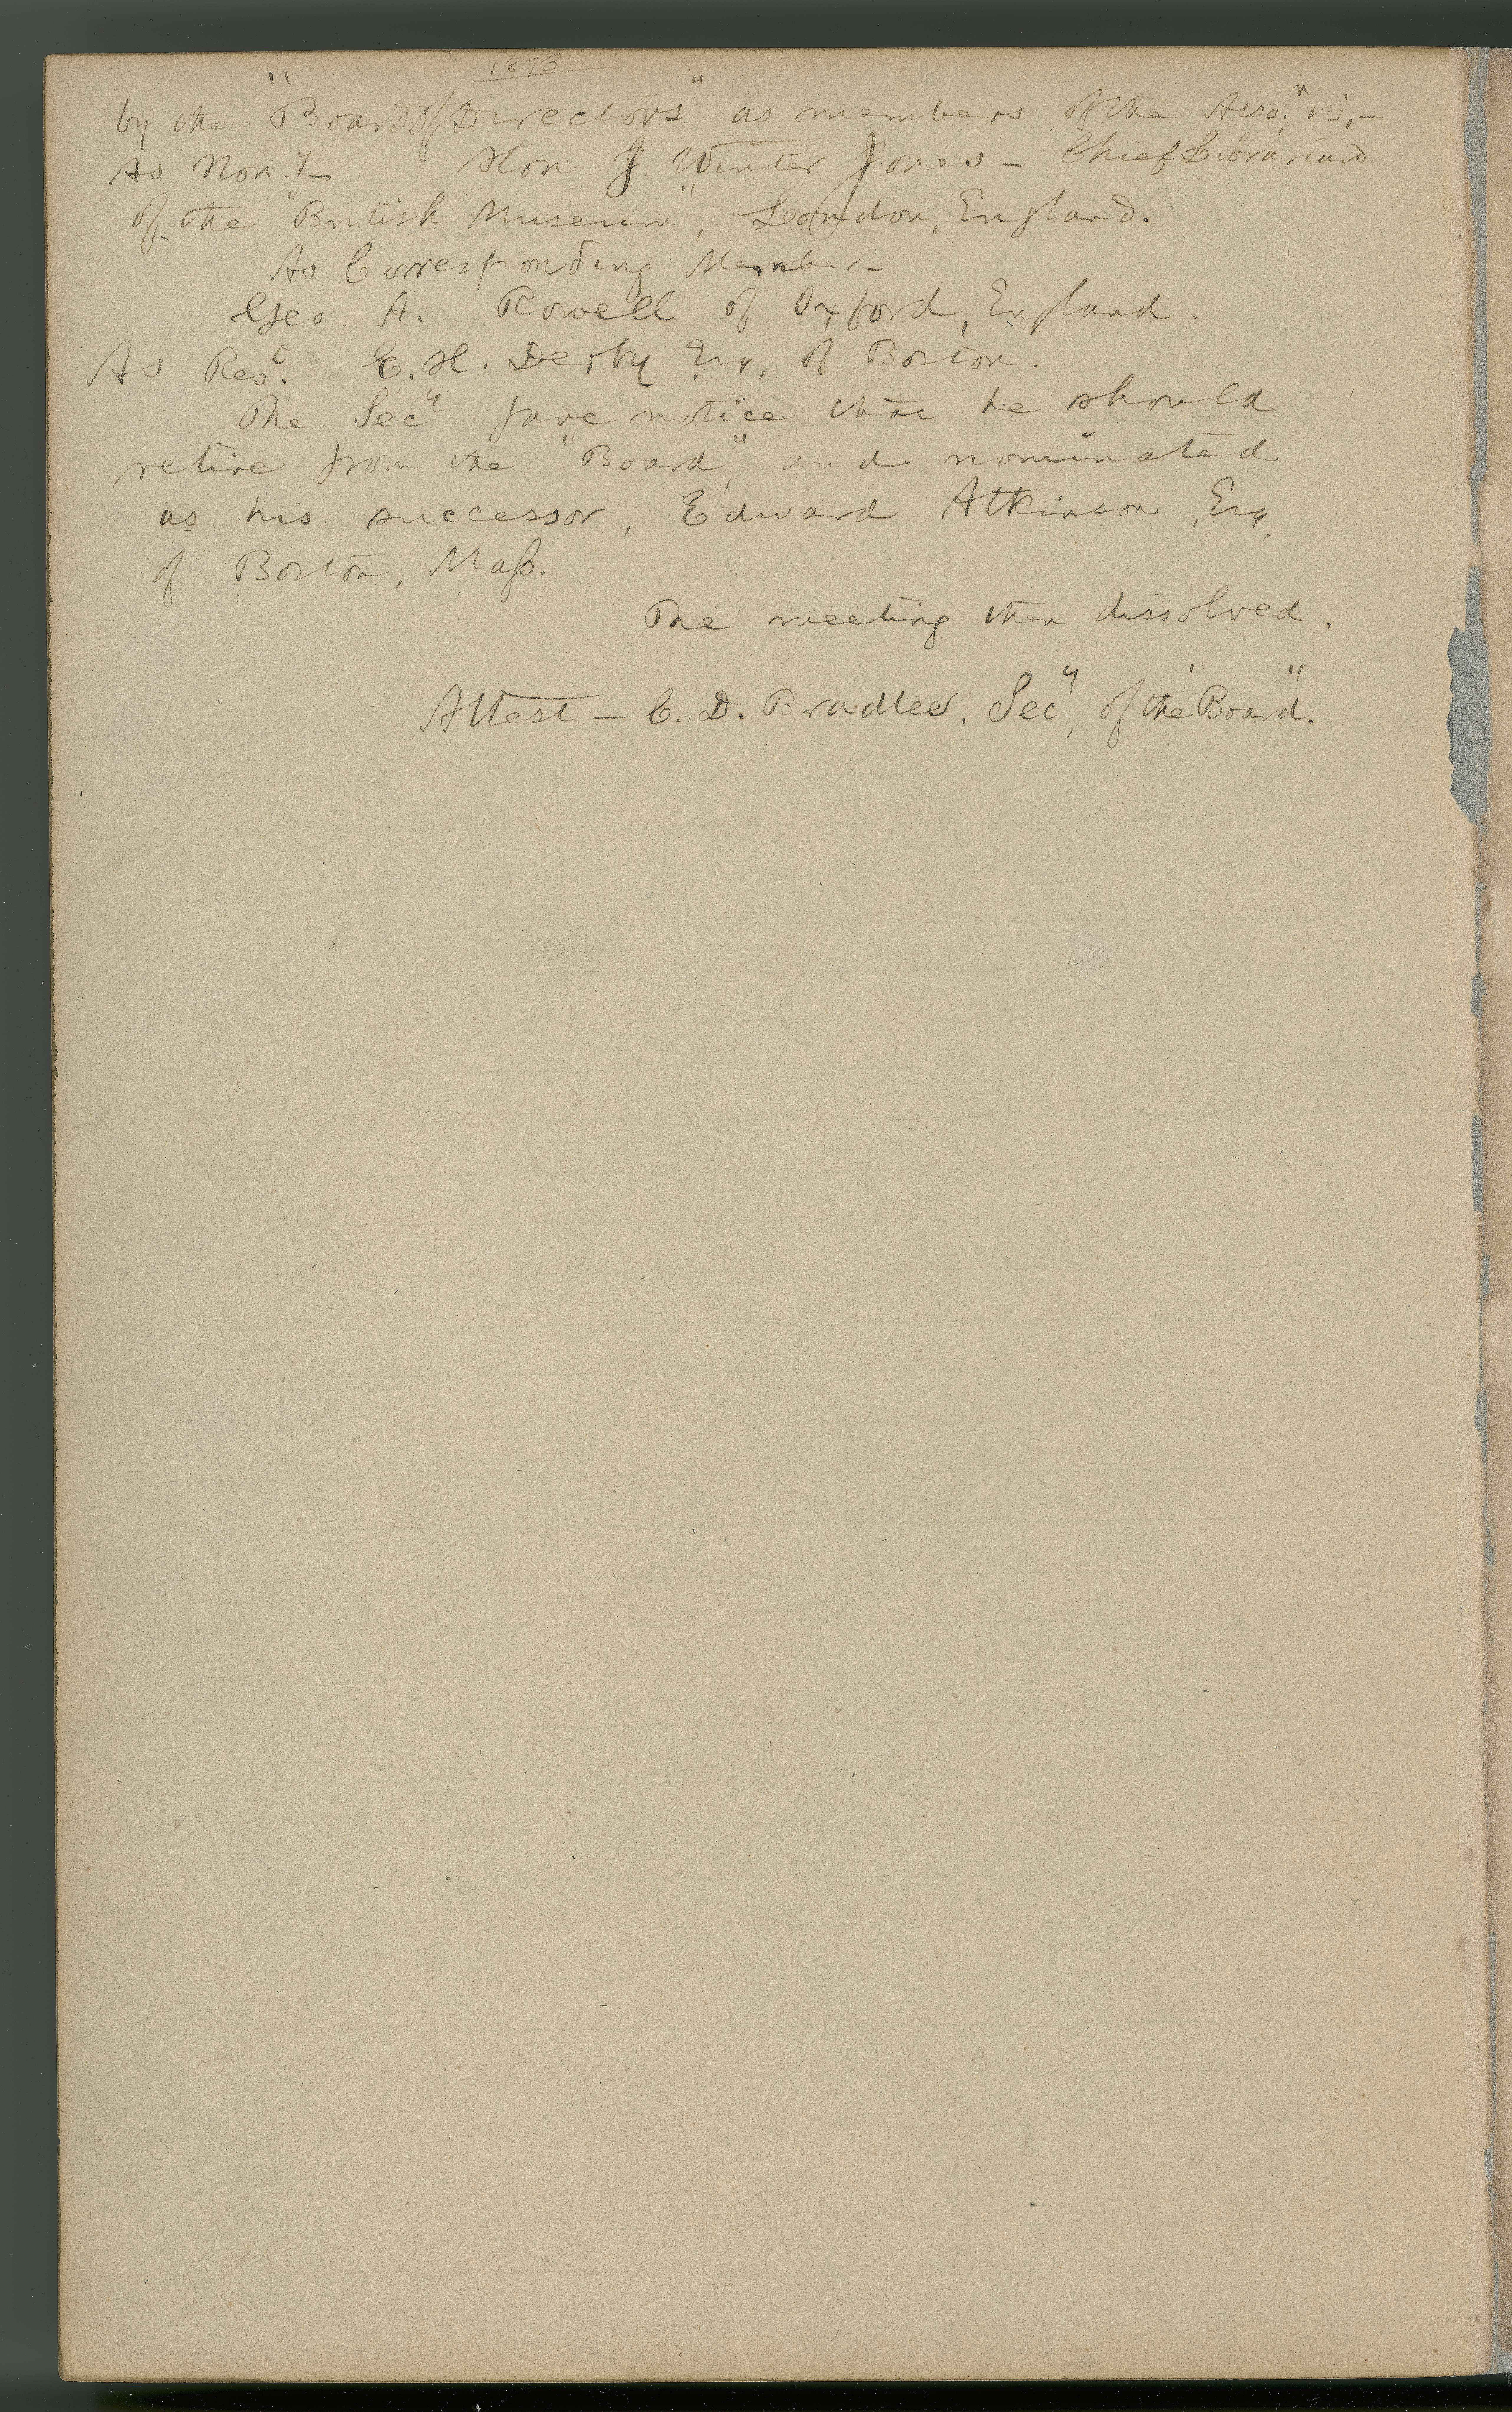 1873
by the "Board of Directors" as members of the Asso.n viz,-
As Hon.y- Hon J. Winter Jones - Chief Librarian
of the "British Museum", London, England.
As Corresponding Member-
Geo. A. Rowell of Oxford, England.
As Res.t E. H. Derby Esq, of Boston.
The Secy gave notice that he should
retire from the "Board", and nominated
as his successor, Edward Atkinson, Esq,
of Boston, Mass.
The meeting then dissolved.
Attest - C. D. Bradlee. Sec.y, of the "Board".